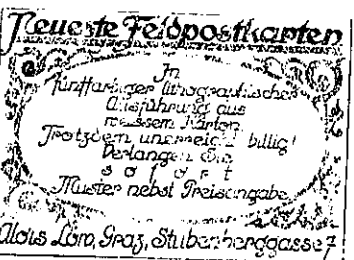 Neueste Feldpostkarten
In
fünffarbiger lithographischer
Ausführung aus
weissem Karton.
Trotzdem unerreicht billig!
Verlangen Sie
sofort
Muster nebst Preisangabe.
Alois Löw, Graz, Stubenberggasse 7